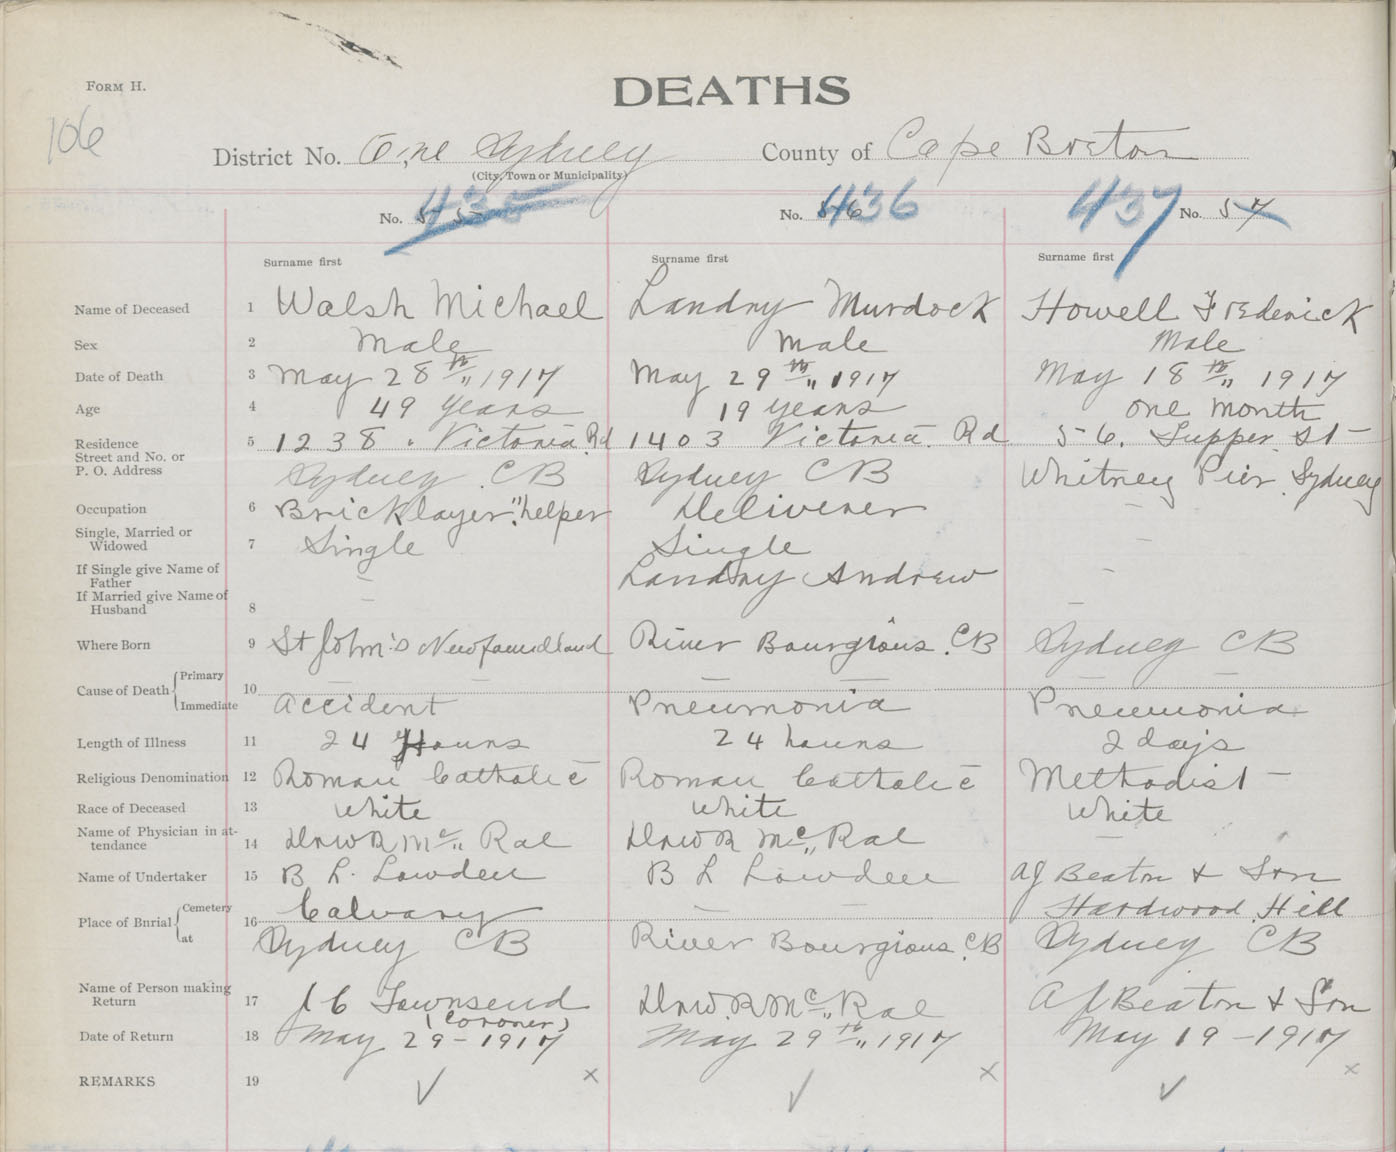 Form H.
DEATHS
106
District No. One Sydney County of Cape Breton
(City, Town or Municipality)
435 436 437
No. 55 No. 56 No. 57
Surname first Surname first Surname first
Name of Deceased 1 Walsh Michael Landry Murdock Howell Frederick
Sex 2 Male Male Male
Date of Death 3 May 28th,, 1917 May 29th,, 1917 May 18th,, 1917
Age 4 49 years 19 years one month
Residence Street and No. or P. O. Address 5 1238 . Victoria Rd 1403 Victoria. Rd 56. Tupper St
Sydney CB Sydney CB Whitney Pier Sydney
Occupation 6 Bricklayer,"helper Deliverer –
Single, Married or Widowed 7 Single Single –
If Single give Name of Father – Landry Andrew –
If Married give Name of Husband 8 – –
Where Born 9 St John's Newfoundland River Bourgious. CB Sydney CB
Cause of Death Primary 10 – – – –
Immediate Accident Pneumonia Pneumonia
Length of Illness 11 24 Hours 24 hours 2 days
Religious Denomination 12 Roman Catholic Roman Catholic Methodist –
Race of Deceased 13 White White White
Name of Physician in attendance 14 Dr W R Mc,, Rae Dr W R Mc,, Rae –
Name of Undertaker 15 B L. Lowden B L Lowden AJ Beaton & Son
Place of Burial Cemetery 16 Calvary – – Hardwood Hill
at Sydney CB River Bourgious. CB Sydney CB
Name of Person making Return 17 Townsend Dr W. R Mc,, Rae AJ Beaton & Son
(Coroner)
Date of Return 18 May 29 – 1917 May 29th,, 1917 May 19 – 1917
REMARKS 19 ✓ x ✓ x ✓ x